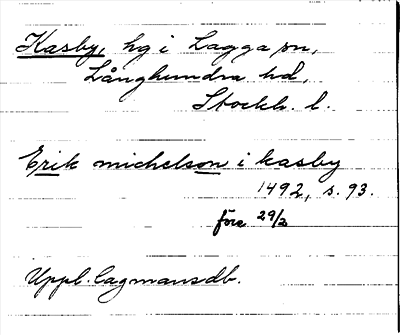 Kasby, hg i Lagga sn,
Långhundra hd,
Stockh. l.
Erik michelson i kasby
1492, s. 93.
före 29/3
Uppl. lagmansdb.